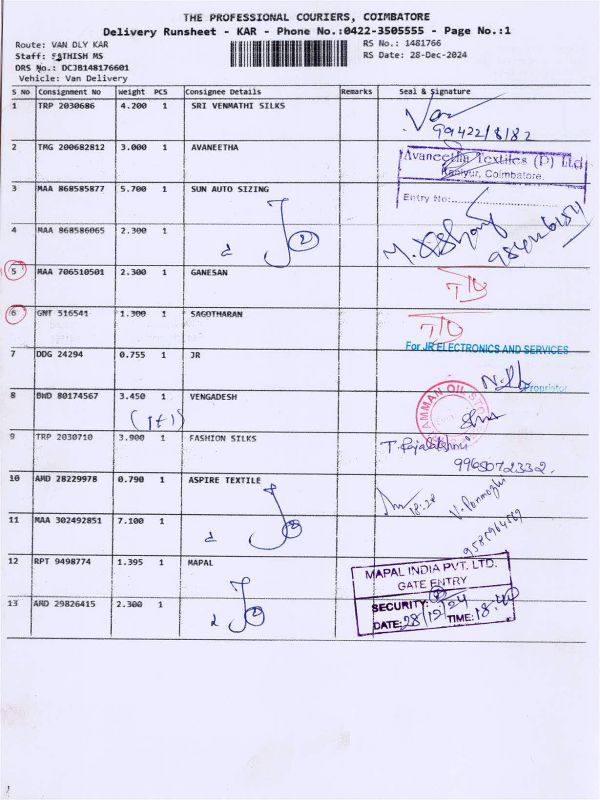 THE PROFESSIONAL COURIERS, COIMBATORE
Delivery Runsheet - KAR - Phone No.:0422-3505555 - Page No.:1
Route: VAN DLY KAR RS No.: 1481766
Staff: SATHISH MS RS Date: 28-Dec-2024
DRS No.: DCJB148176601
Vehicle: Van Delivery
S No Consignment No Weight PCS Consignee Details Remarks Seal & Signature
1 TRP 2030686 4.200 1 SRI VENMATHI SILKS
99422/8/82
2 TMG 200682812 3.000 1 AVANEETHA
Avaneetha Textiles (P) Ltd
Kaniyur, Coimbatore.
3 MAA 868585877 5.700 1 SUN AUTO SIZING
Entry No:
4 MAA 868586065 2.300 1
2
5 MAA 706510501 2.300 1 GANESAN
6 GNT 516541 1.300 1 SAGOTHARAN
For JR ELECTRONICS AND SERVICES
7 DDG 24294 0.755 1 JR
Proprietor
8 BWD 80174567 3.450 1 VENGADESH
(1+1)
AMMAN OIL STO
9 TRP 2030710 3.900 1 FASHION SILKS T. Rajalakshmi
9965072332.
10 AMD 28229978 0.790 1 ASPIRE TEXTILE
18:28
V. Ponmozhi
11 MAA 302492851 7.100 1
12 RPT 9498774 1.395 1 MAPAL
MAPAL INDIA PVT. LTD.
GATE ENTRY
13 AMD 29826415 2.300 1
2
SECURITY:
DATE: 28/12/24 TIME: 18:40